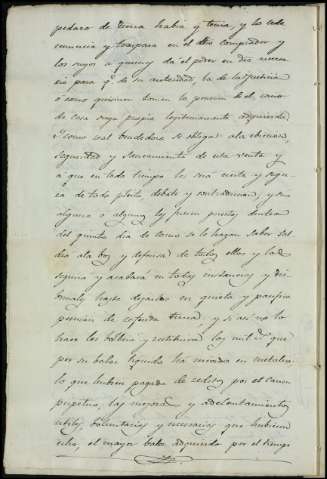 pedazo de tierra habia y tenia, y lo cede
renuncia y traspasa en el dho comprador y
los suyos a quienes da el poder en dro necesa-
rio para q.e de su autoridad, ó de la Justicia
ó como quisieren tomen la posesion de el, como
de cosa suya propia legitimamente adquirida
Y como real vendedora se obliga á la eviccion,
seguridad y saneamiento de esta venta y
á que en todo tiempo les será cierta y segu-
ra de todo pleito debate y contradiccion, y si
alguno ó algunos les fueren puestos, dentro
del quinto dia de como se lo hagan saber sal-
drá á la voz y defensa de todos ellos y los
seguirá y acabará en todas instancias y tri-
bunales hasta dejarlos en quieta y pacifica
posesion de referida tierra, y si asi no lo
hace les bolverá y restituirá los mil r.s que
por su valor liquido ha recibido en metalico
lo que hubiere pagado de reditos por el canon
perpetuo, las mejoras y adelantamientos
utiles, voluntarios y necesarios que hubieren
echo, el mayor valor adquirido por el tiempo